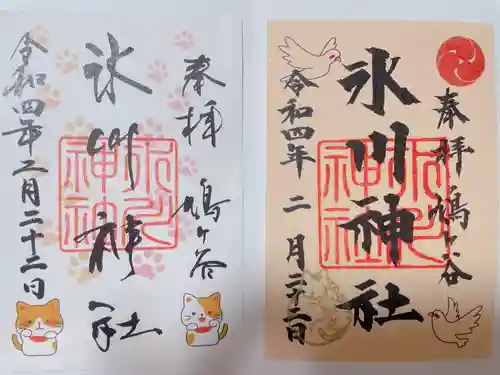 奉拝 鳩ヶ谷
氷川神社
令和四年二月二十二日
奉拝 鳩ヶ谷
氷川神社
令和四年二月二十二日
氷川神社
氷川神社